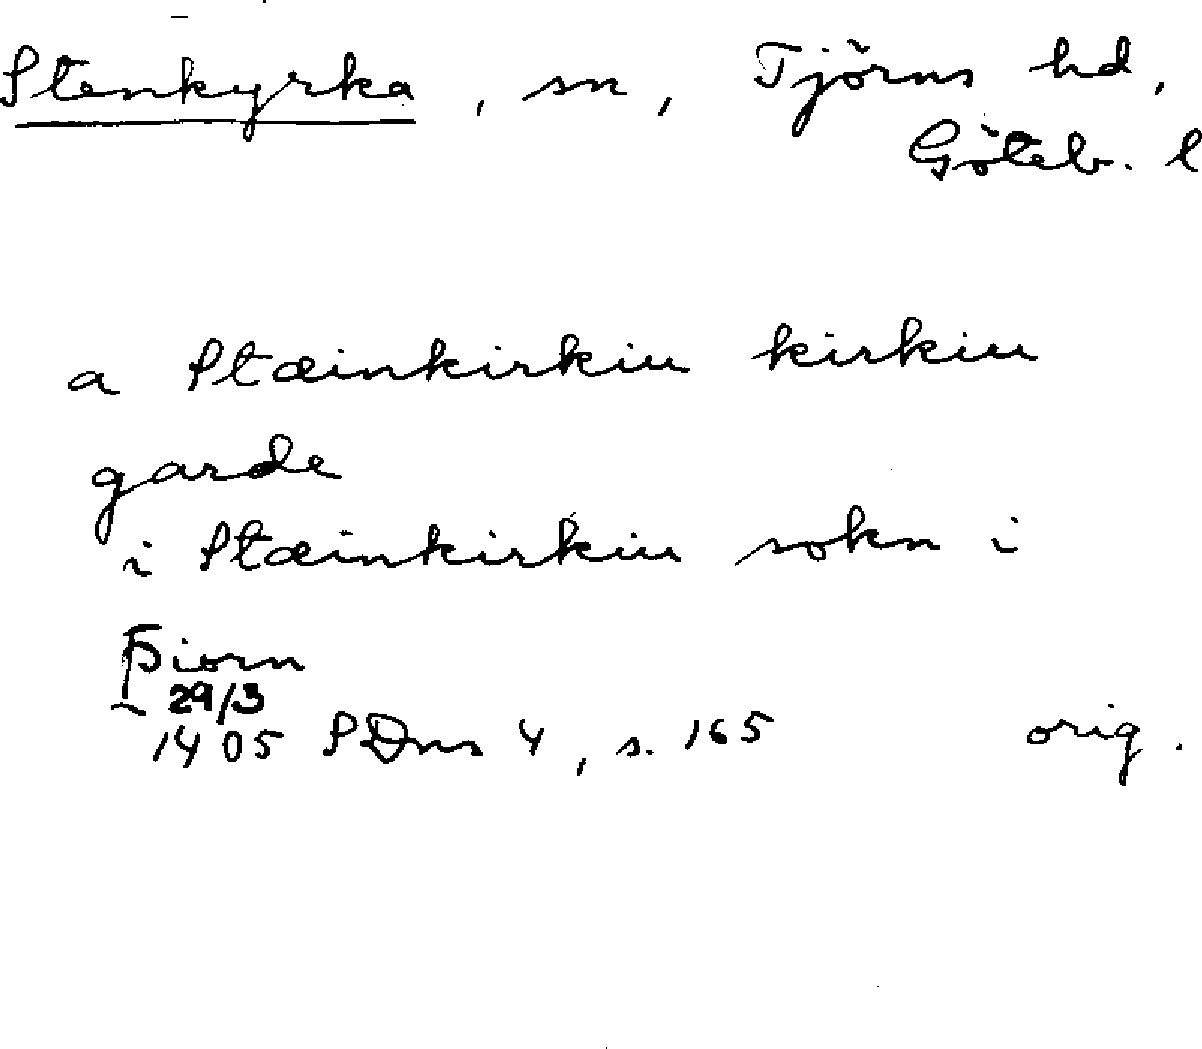 Stenkyrka, sn, Tjörns hd,
Göteb. l
a Stæinkirkiu kirkiu
garde
i Stæinkirkiu sokn i
Þiorn
29/3
1405 SDns 4, s. 165 orig.